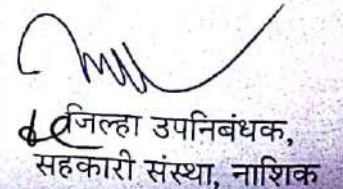 जिल्हा उपनिबंधक,
सहकारी संस्था, नाशिक